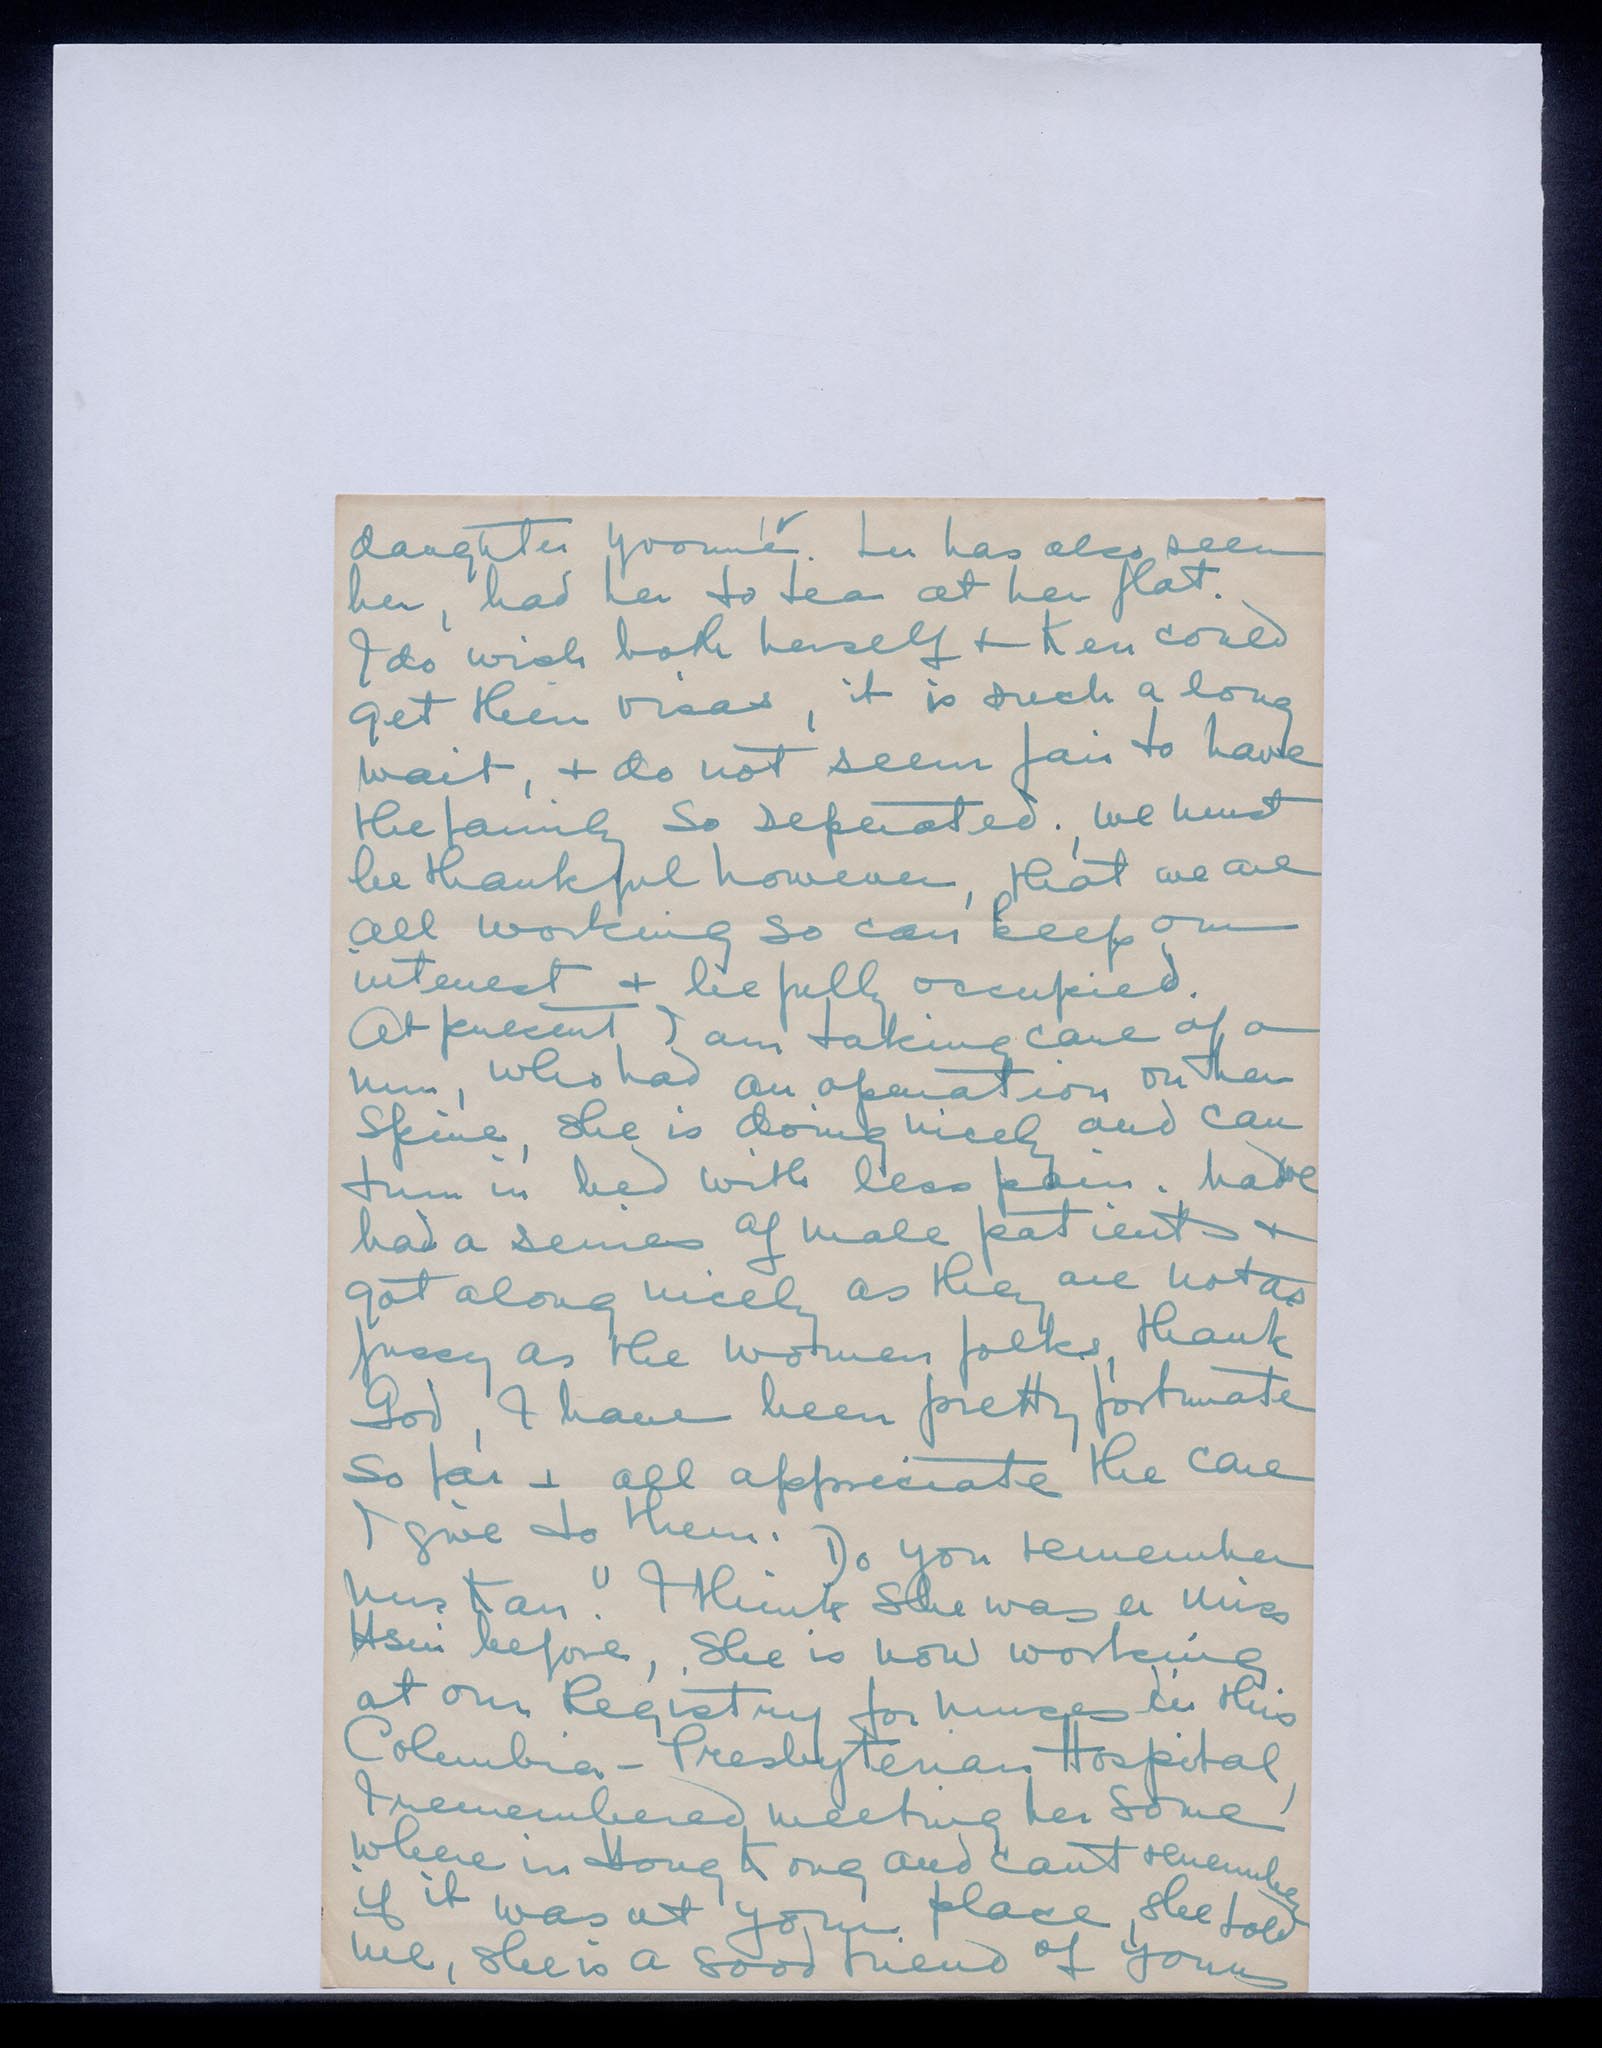 daughter Yvonne. Lu has also seen
her, had her to tea at her flat.
I do wish both herself + Ken could
get their visas, it is such a long
wait, + do not seem fair to have
the family so seperated. We must
be thankful however, that we are
all working so can keep our
interest + be fully occupied.
At present I am taking care of a
nun, who had an operation on her
spine, she is doing nicely and can
turn in bed with less pain. have
had a series of male patients +
got along nicely as they are not as
fussy as the women folks, thank
God, I have been pretty fortunate
so far + all appreciate the care
I give to them. Do you remember
Mrs Kan." I think she was a Miss
Hsin before, she is now working
at our Registry for nurses in this
Columbia - Presbyterian Hospital,
I remembered meeting her some
where in Hong Kong and can't remember
if it was at your place, she told
me, she is a good friend of yours